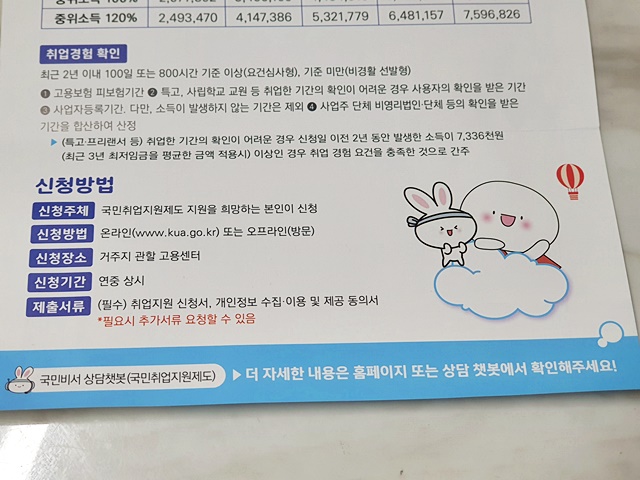 중위소득 120% 2,493,470 4,147,386 5,321,779 6,481,157 7,596,826
취업경험 확인
최근 2년 이내 100일 또는 800시간 기준 이상(요건심사형), 기준 미만(비경활 선발형)
❶ 고용보험 피보험기간 ❷ 특고, 사립학교 교원 등 취업한 기간의 확인이 어려운 경우 사용자의 확인을 받은 기간
❸ 사업자등록기간. 다만, 소득이 발생하지 않는 기간은 제외 ❹ 사업주 단체 비영리법인·단체 등의 확인을 받은
기간을 합산하여 산정
▶ (특고·프리랜서 등) 취업한 기간의 확인이 어려운 경우 신청일 이전 2년 동안 발생한 소득이 7,336천원
(최근 3년 최저임금을 평균한 금액 적용시) 이상인 경우 취업 경험 요건을 충족한 것으로 간주
신청방법
신청주체 국민취업지원제도 지원을 희망하는 본인이 신청
신청방법 온라인(www.kua.go.kr) 또는 오프라인(방문)
신청장소 거주지 관할 고용센터
신청기간 연중 상시
제출서류 (필수) 취업지원 신청서, 개인정보 수집·이용 및 제공 동의서
*필요시 추가서류 요청할 수 있음
국민비서 상담챗봇(국민취업지원제도) ▶ 더 자세한 내용은 홈페이지 또는 상담 챗봇에서 확인해주세요!